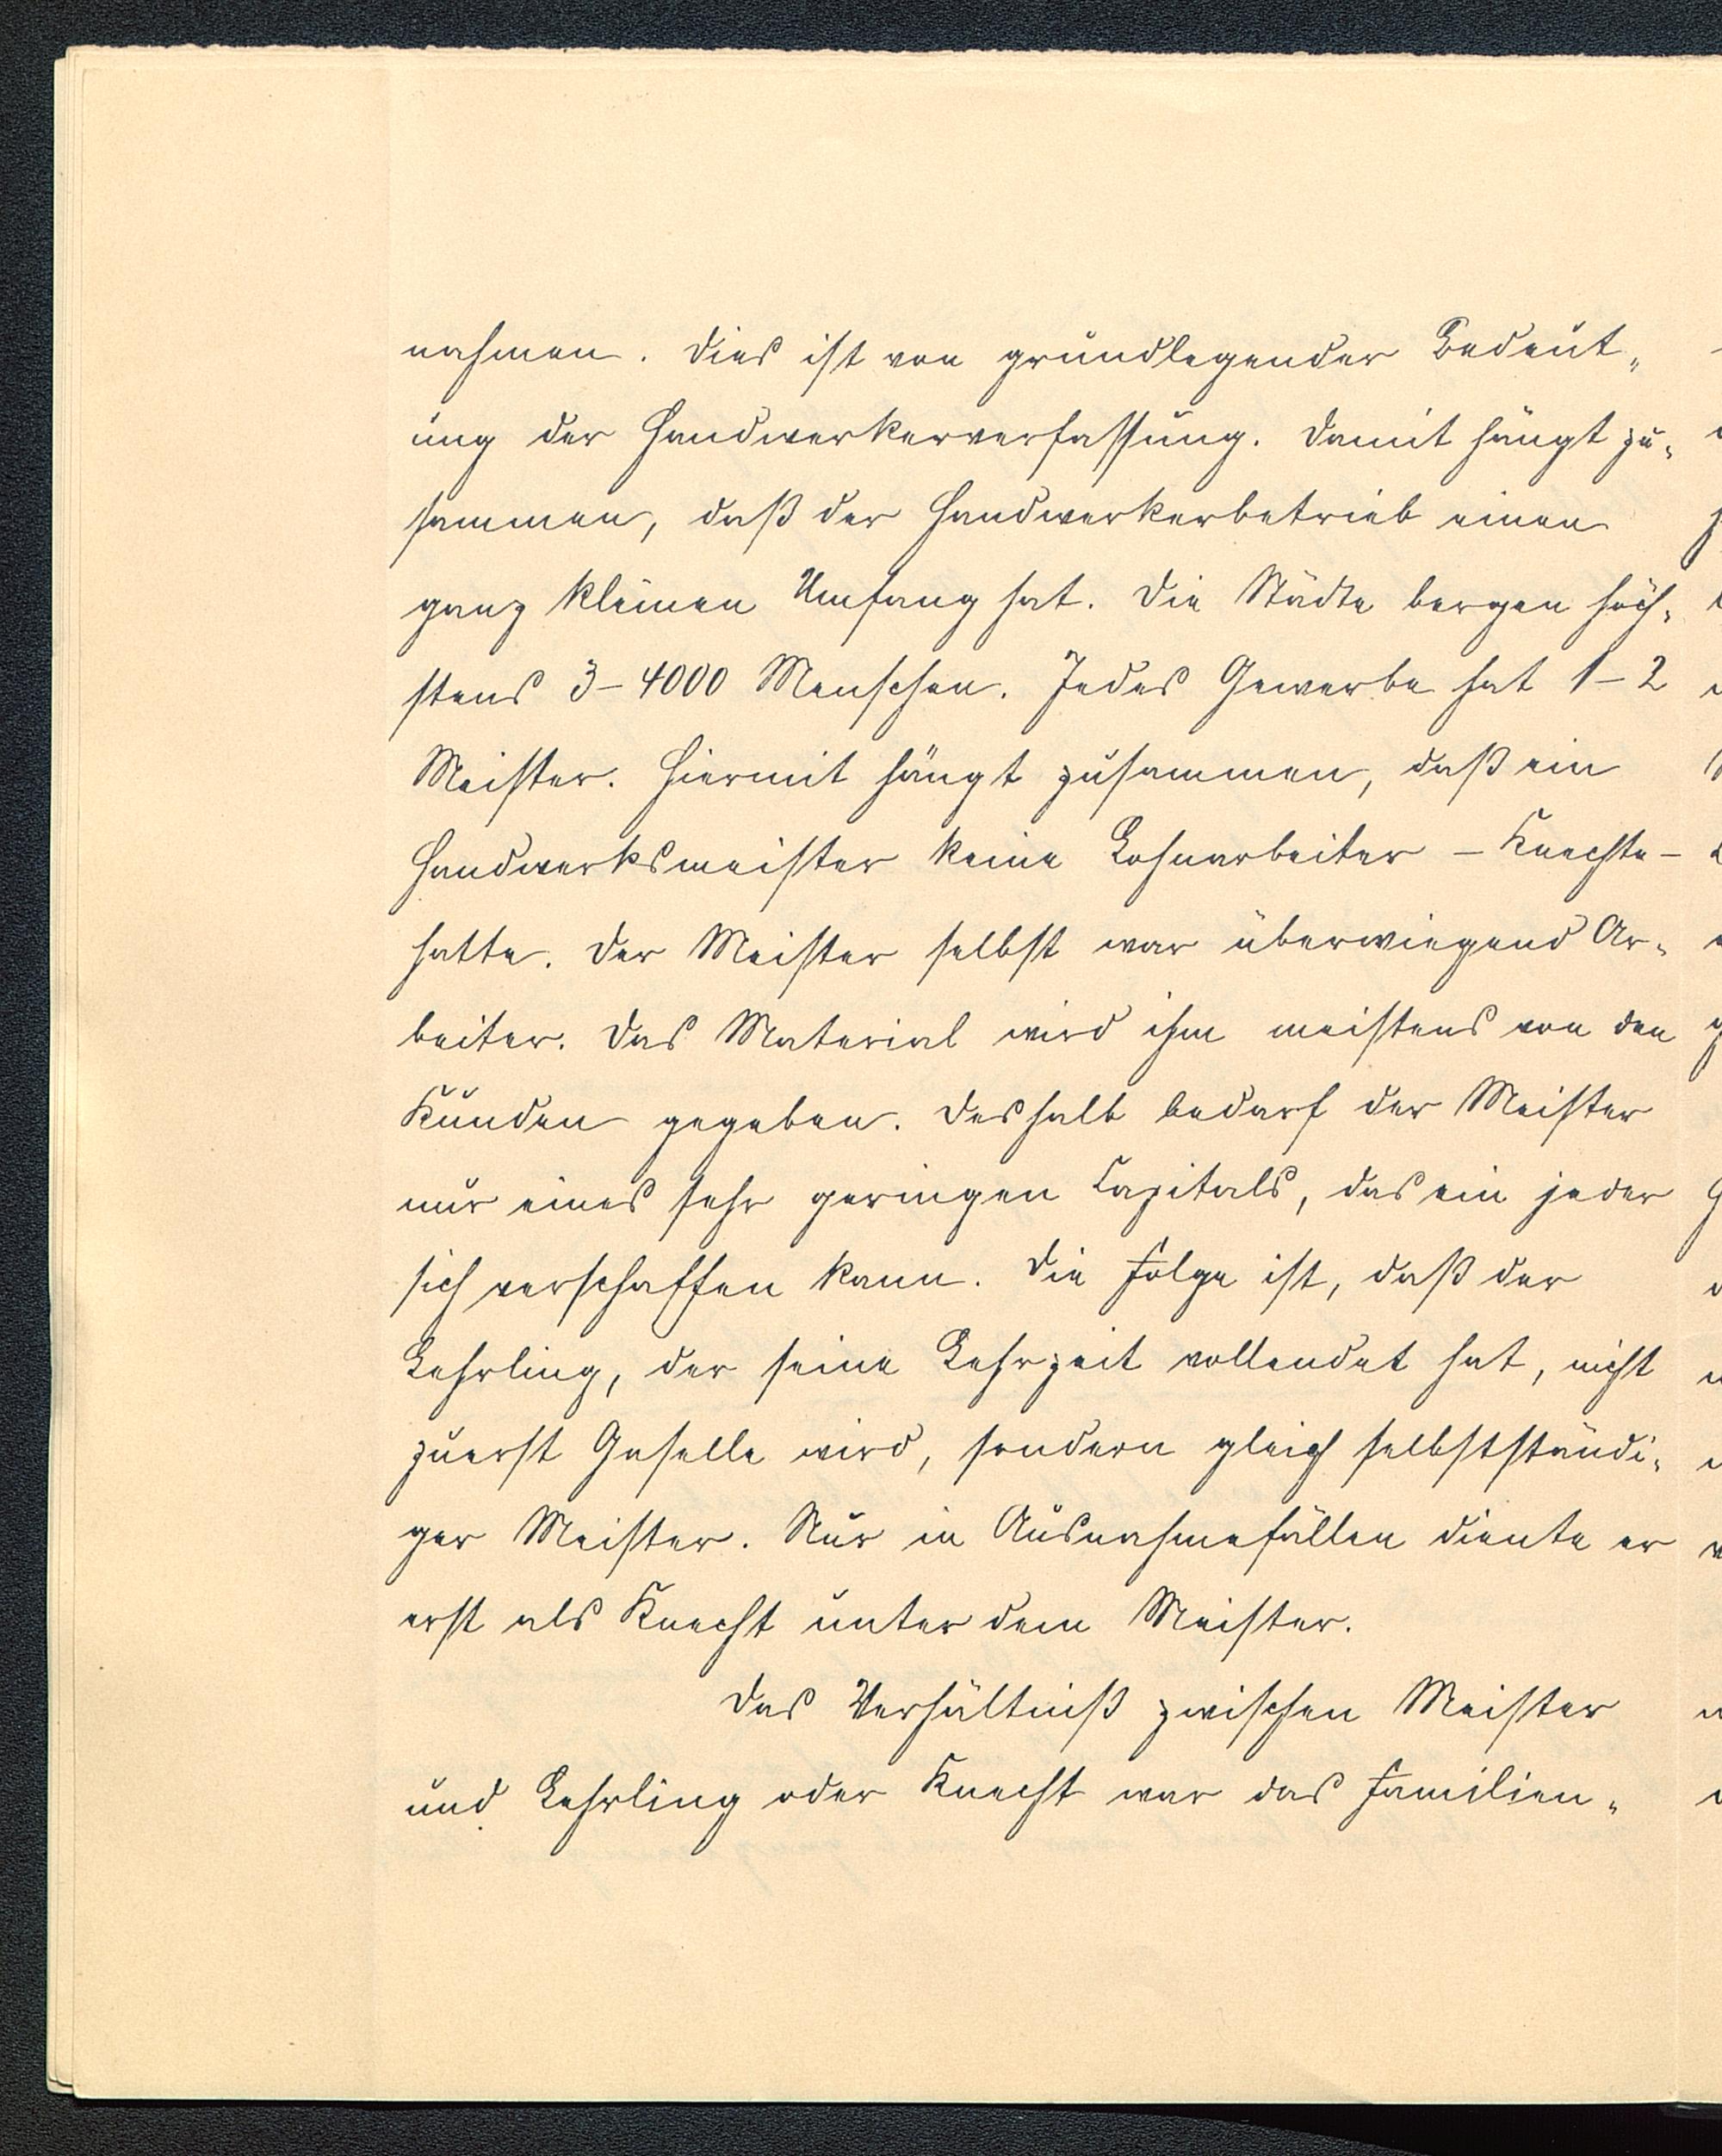 nahmen. Dies ist von grundlegender Bedeut„
ung der Handwerkerverfassung. Damit hängt zu„
sammen, daß der Handwerkerbetrieb einen
ganz kleinen Umfang hat. Die Städte bergen höch„
stens 3–4000 Menschen. Jedes Gewerbe hat 1–2
Meister. Hiermit hängt zusammen, daß ein
Handwerksmeister keine Lohnarbeiter – Knechte –
hatte. Der Meister selbst war überwiegend Ar„
beiter. Das Material wird ihm meistens von den
Kunden gegeben. Deshalb bedarf der Meister
nur eines sehr geringen Capitals, das ein jeder
sich verschaffen kann. Die Folge ist, daß der
Lehrling, der seine Lehrzeit vollendet hat, nicht
zuerst Geselle wird, sondern gleich selbstständi„
ger Meister. Nur in Ausnahmefällen diente er
erst als Knecht unter dem Meister.
Das Verhältniß zwischen Meister
und Lehrling oder Knecht war das Familien„